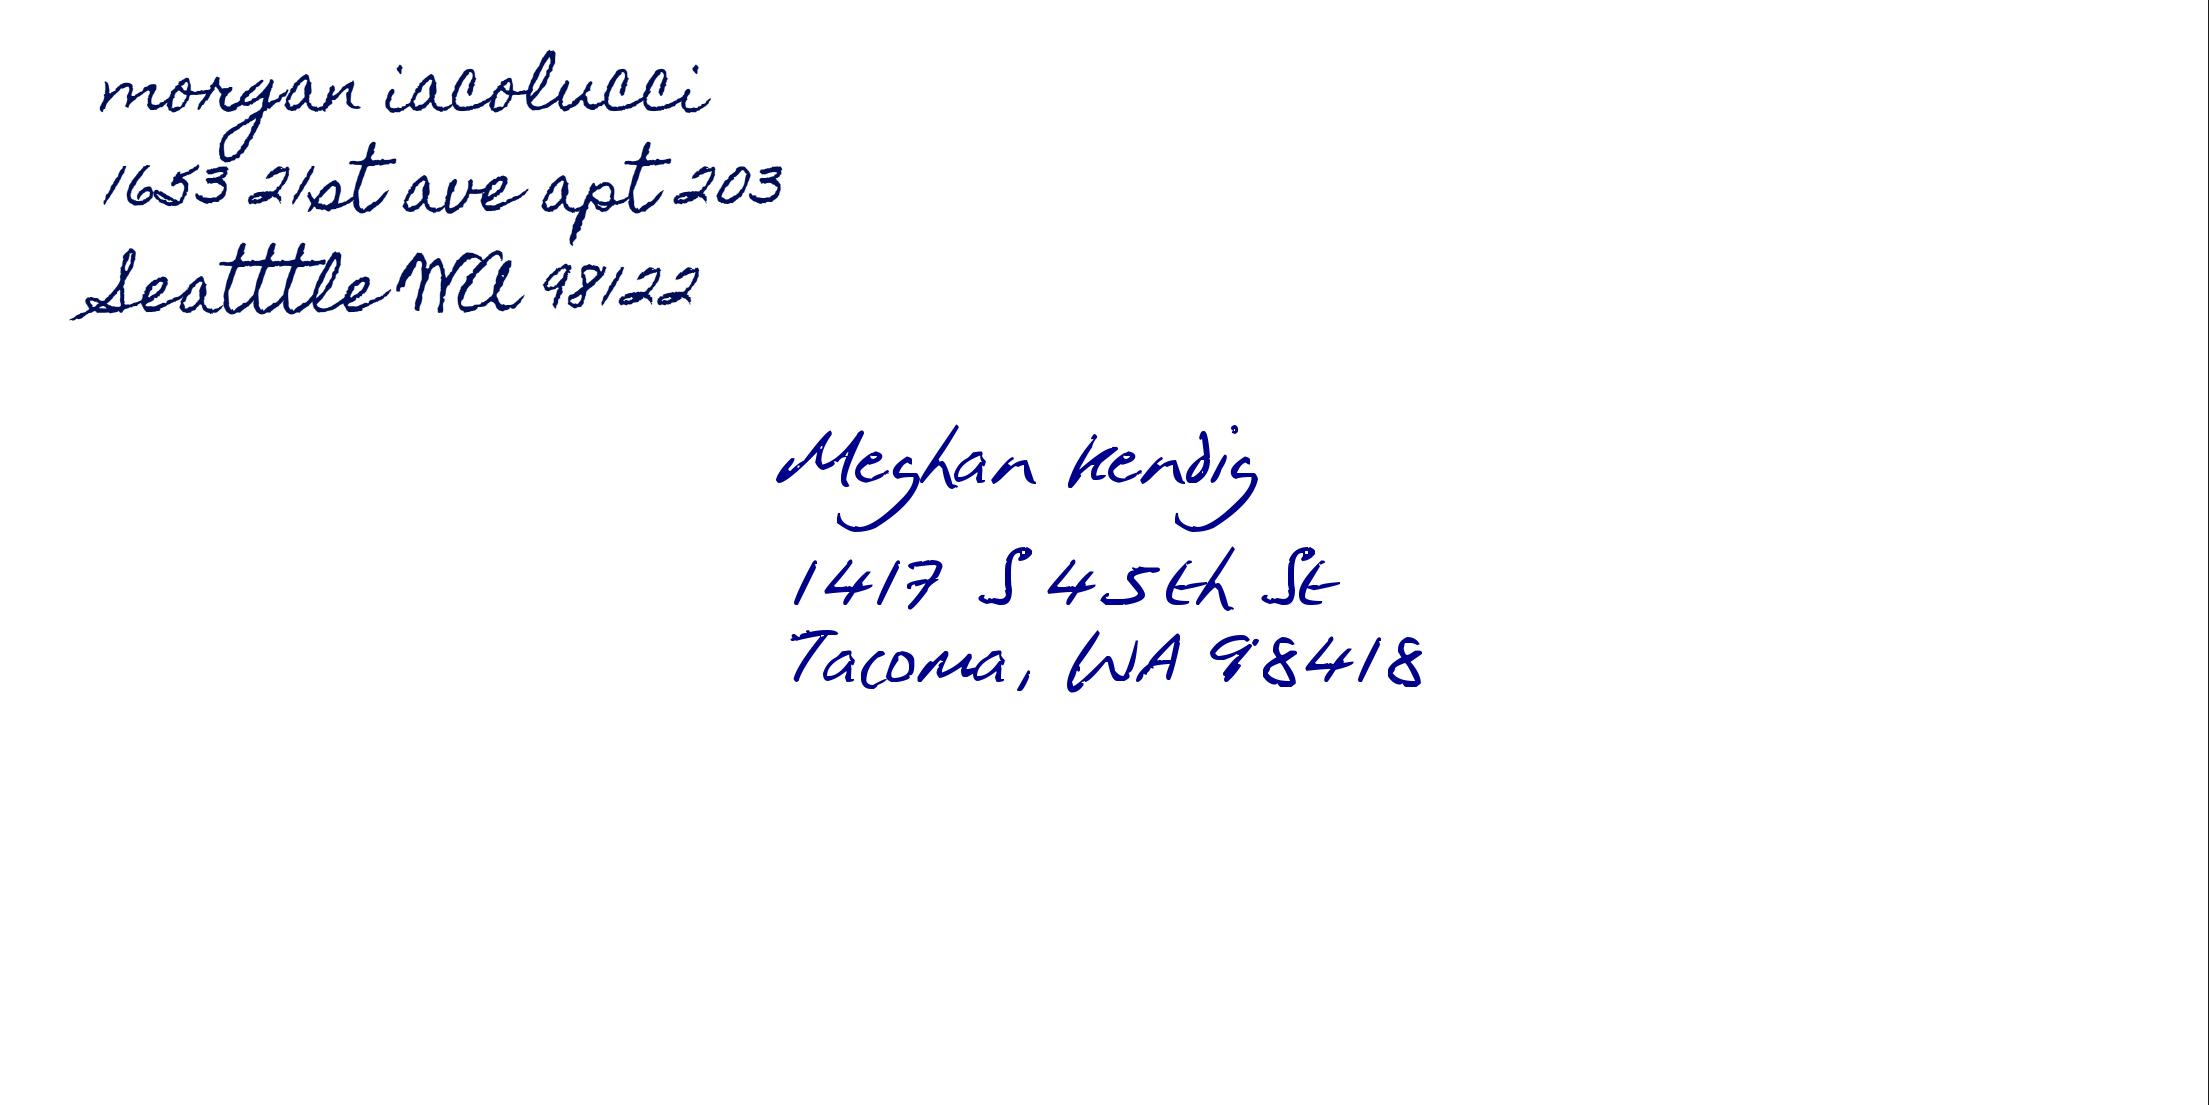 morgan iacolucci
1653 21st ave apt 203
Seatttle WA 98122
Meghan Kendig
1417 S 45th St
Tacoma, WA 98418